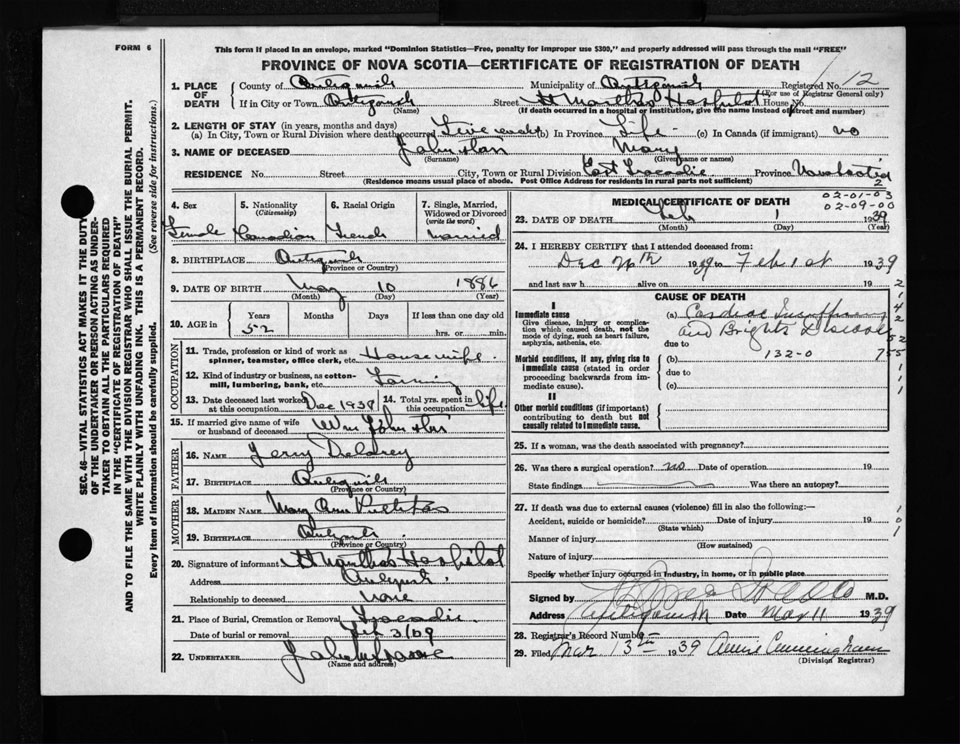 FORM 6
This form if placed in an envelope, marked "Dominion Statistics—Free, penalty for improper use $300," and properly addressed will pass through the mail "FREE"
PROVINCE OF NOVA SCOTIA—CERTIFICATE OF REGISTRATION OF DEATH
SEC. 46—VITAL STATISTICS ACT MAKES IT THE DUTY
OF THE UNDERTAKER OR PERSON ACTING AS UNDER-
TAKER TO OBTAIN ALL THE PARTICULARS REQUIRED
IN THE "CERTIFICATE OF REGISTRATION OF DEATH"
AND TO FILE THE SAME WITH THE DIVISION REGISTRAR WHO SHALL ISSUE THE BURIAL PERMIT.
WRITE PLAINLY WITH UNFADING INK. THIS IS A PERMANENT RECORD.
Every item of Information should be carefully supplied. (See reverse side for instructions.)
1. PLACE OF DEATH
County of Antigonish Municipality of Antigonish Registered No. 12
(For use of Registrar General only)
If in City or Town Antigonish Street St Marthas Hospital House No.
(Name) (If death occurred in a hospital or institution, give the name instead of street and number)
2. LENGTH OF STAY (in years, months and days)
(a) In City, Town or Rural Division where death occurred Five weeks (b) In Province Life (c) In Canada (if immigrant) no
3. NAME OF DECEASED Mary
(Surname) (Given name or names)
RESIDENCE No. Street City, Town or Rural Division East Tracadie Province Nova Scotia
(Residence means usual place of abode. Post Office Address for residents in rural parts not sufficient)
2
4. Sex Female
5. Nationality (Citizenship) Canadian
6. Racial Origin French
7. Single, Married, Widowed or Divorced (write the word) married
8. BIRTHPLACE Antigonish
(Province or Country)
9. DATE OF BIRTH May 10 1886
(Month) (Day) (Year)
10. AGE in Years Months Days If less than one day old
52 hrs. or min.
OCCUPATION
11. Trade, profession or kind of work as spinner, teamster, office clerk, etc. Housewife
12. Kind of industry or business, as cotton-mill, lumbering, bank, etc. Farming
13. Date deceased last worked at this occupation Dec 1938
14. Total yrs. spent in this occupation life
15. If married give name of wife or husband of deceased Wm
FATHER
16. Name
17. Birthplace Antigonish
(Province or Country)
MOTHER
18. Maiden Name Mary Ann
19. Birthplace Antigonish
(Province or Country)
20. Signature of informant St Marthas Hospital
Address Antigonish
Relationship to deceased none
21. Place of Burial, Cremation or Removal Tracadie
Date of burial or removal Feb 3/39
22. Undertaker John
(Name and address)
MEDICAL CERTIFICATE OF DEATH
02-01-03
02-09-00
23. DATE OF DEATH Feb 1 1939
(Month) (Day) (Year)
24. I HEREBY CERTIFY that I attended deceased from:
Dec 1939 to Feb 1st 1939
and last saw h alive on 19
CAUSE OF DEATH
I
Immediate cause
Give disease, injury or complication which caused death, not the mode of dying, such as heart failure, asphyxia, asthenia, etc.
(a) Cardiac
and Brights Disease
due to
Morbid conditions, if any, giving rise to Immediate cause (stated in order proceeding backwards from immediate cause).
(b) 132-0
due to
(c)
II
Other morbid conditions (if important) contributing to death but not causally related to Immediate cause.
25. If a woman, was the death associated with pregnancy?
26. Was there a surgical operation? no Date of operation 19
State findings Was there an autopsy?
27. If death was due to external causes (violence) fill in also the following:—
Accident, suicide or homicide? Date of injury 19
(State which)
Manner of injury
(How sustained)
Nature of injury
Specify whether injury occurred in industry, in home, or in public place
Signed by M.D.
Address Antigonish Date Mar 11 1939
28. Registrar's Record Number
29. Filed Mar 13th 1939 Annie Cunningham
(Division Registrar)